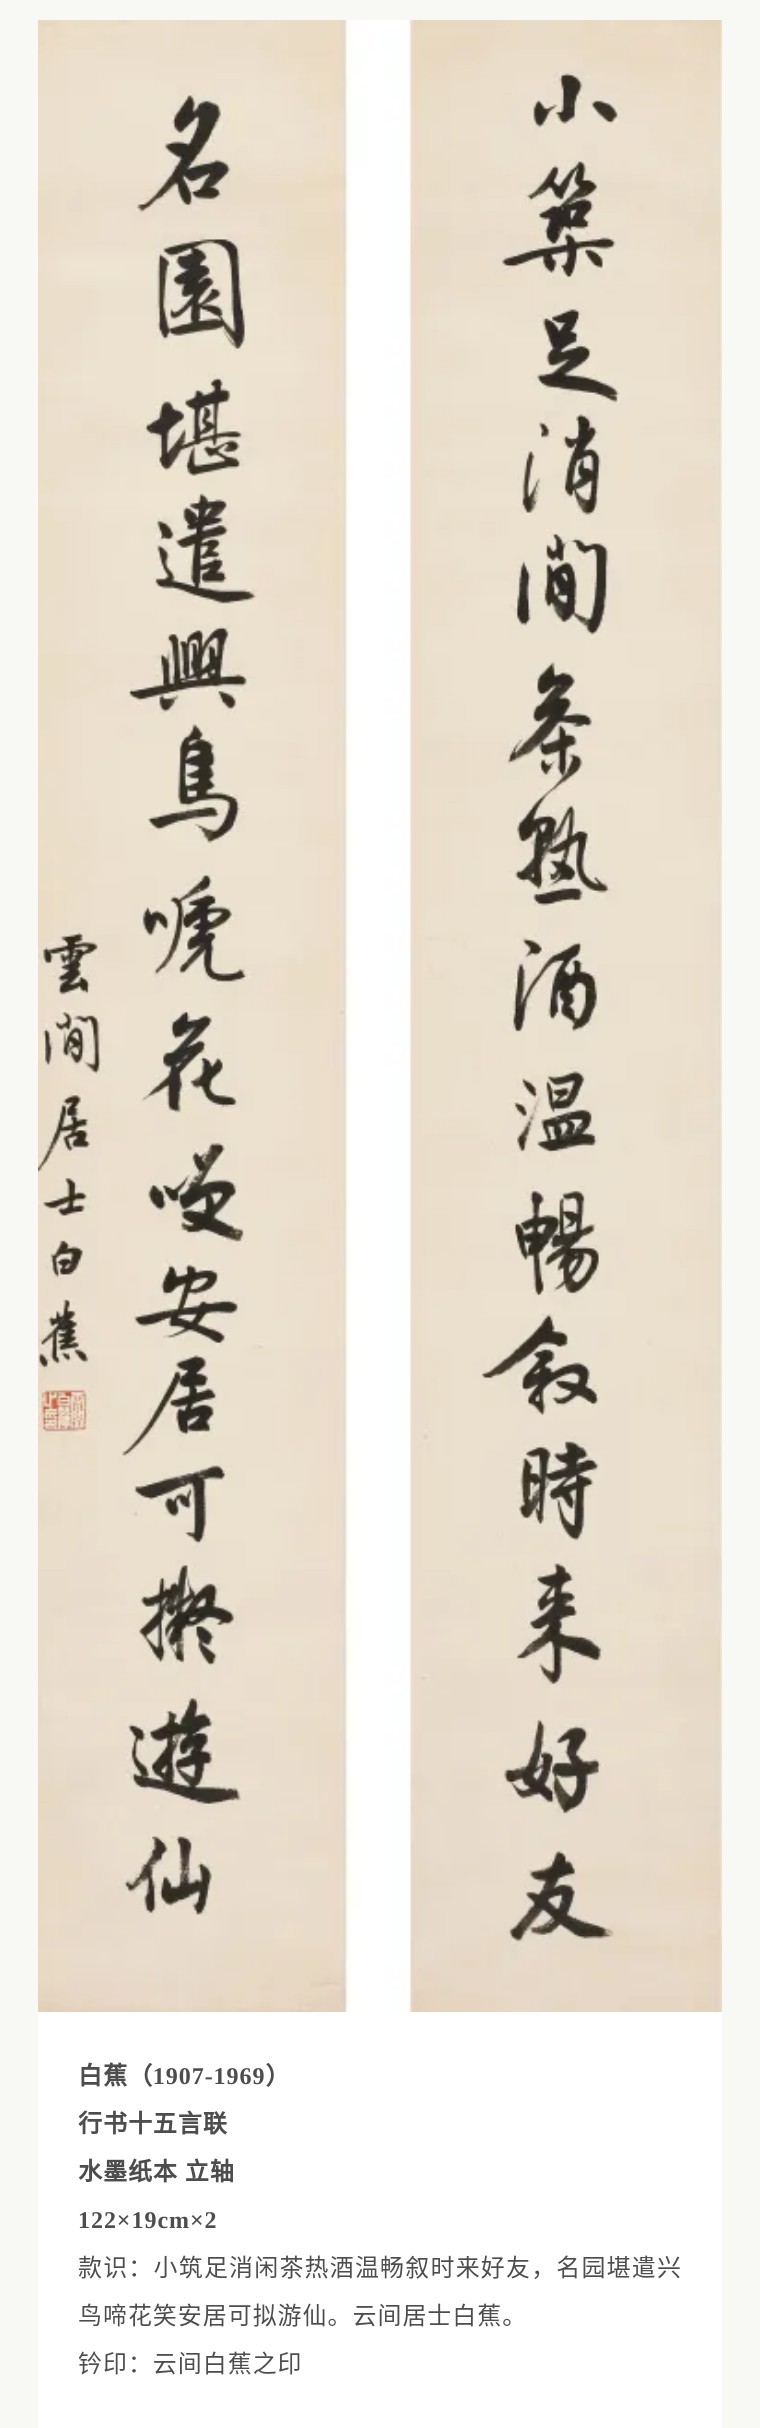 小築足消閒茶熟酒温暢敘時来好友
名園堪遣興鳥嗁花唉安居可擬遊仙
雲間居士白蕉
白蕉（1907-1969）
行书十五言联
水墨纸本 立轴
122×19cm×2
款识：小筑足消闲茶热酒温畅叙时来好友，名园堪遣兴
鸟啼花笑安居可拟游仙。云间居士白蕉。
钤印：云间白蕉之印